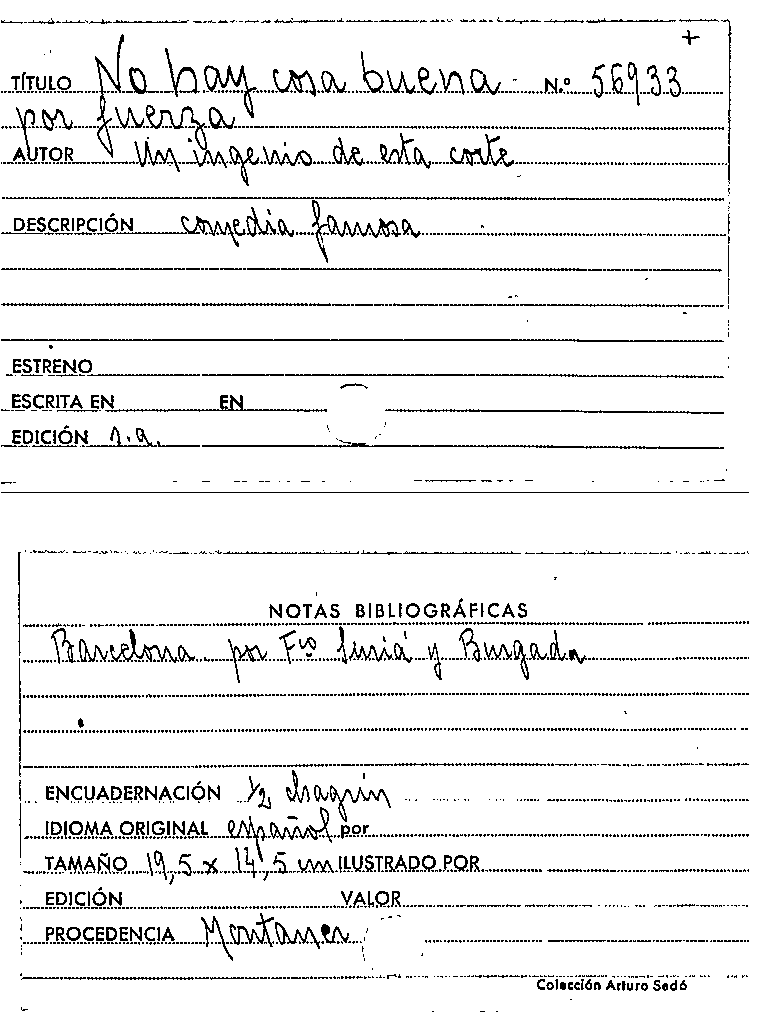 +
TÍTULO No hay cosa buena N.º 56933
por fuerza
AUTOR Un ingenio de esta corte
DESCRIPCIÓN comedia famosa
ESTRENO
ESCRITA EN EN
EDICIÓN s.a.
NOTAS BIBLIOGRÁFICAS
Barcelona. por Fco Suriá y Burgada
ENCUADERNACIÓN 1/2 chagrín
IDIOMA ORIGINAL español por
TAMAÑO 19,5 x 14,5 cm ILUSTRADO POR
EDICIÓN VALOR
PROCEDENCIA Montaner
Colección Arturo Sedó